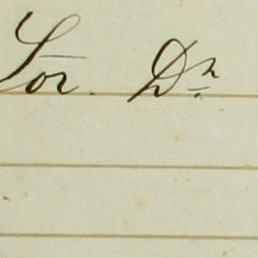 Sor. Dn